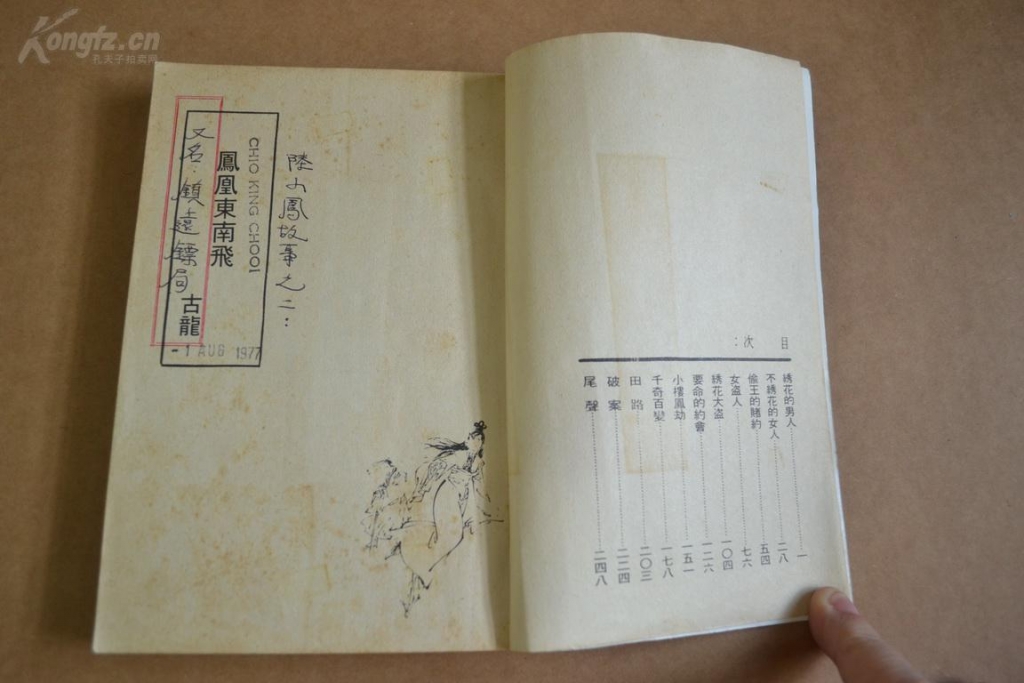 Kongfz.cn
孔夫子拍卖网
陸小鳳故事之二：
CHIO KING CHOOI
鳳凰東南飛
又名：鎮遠鏢局
古龍
-1 AUG 1977
目次：
綉花的男人 一
不綉花的女人 二八
偷王的賭約 五四
女盗人 七六
綉花大盗 一〇四
要命的約會 一二六
小樓鳳劫 一五一
千奇百變 一七八
田路 二〇三
破案 二二四
尾聲 二四八